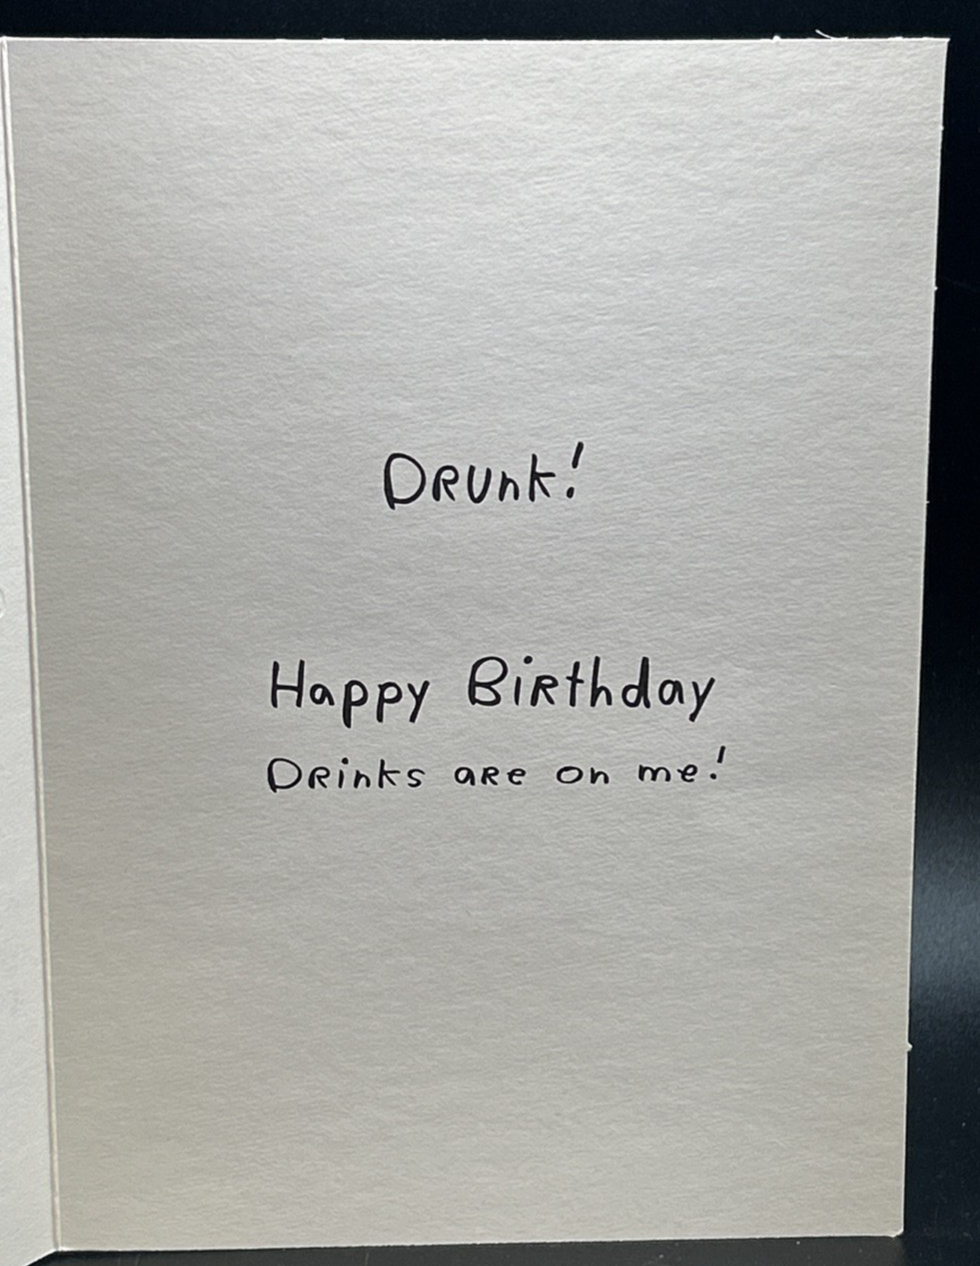 Drunk!
Happy Birthday
Drinks are on me!